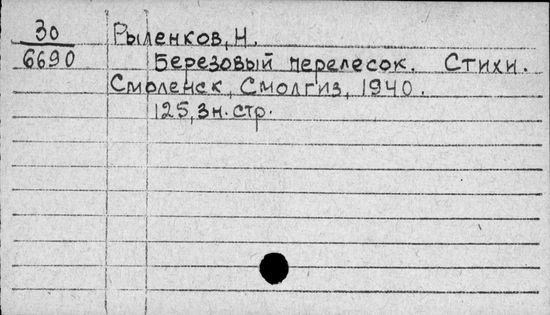 30 Рыленков, Н.
6690 Березовый перелесок. Стихи.
Смоленск, Смолгиз, 1940.
125, 3 н. стр.